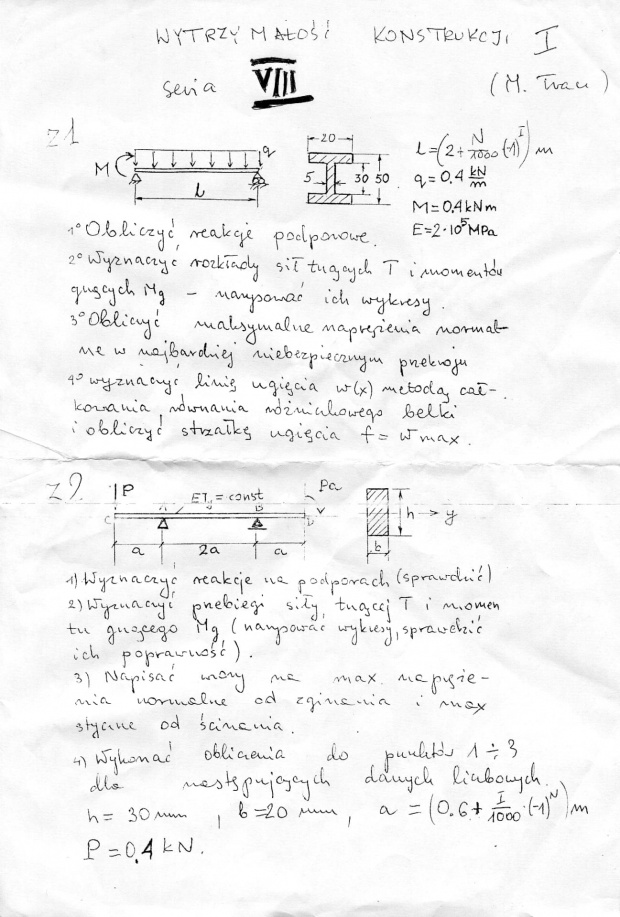 WYTRZYMAŁOŚĆ KONSTRUKCJI I
seria VIII (M. Trac )
z1
M q l
20
5 30 50
l = (2 + N/1000 (-1)^I) m
q = 0.4 kN/m
M = 0.4 kNm
E = 2·10^5 MPa
1° Obliczyć reakcje podporowe.
2° Wyznaczyć rozkłady sił tnących T i momentów
gnących Mg – narysować ich wykresy.
3° Obliczyć maksymalne naprężenia normal-
ne w najbardziej niebezpiecznym przekroju
4° wyznaczyć linię ugięcia w(x) metodą cał-
kowania równania różniczkowego belki
i obliczyć strzałkę ugięcia f = w max.
z2.
P EI = const Pa
C A B D
a 2a a
h y
b
1) Wyznaczyć reakcje na podporach (sprawdzić)
2) Wyznaczyć przebiegi siły tnącej T i momen
tu gnącego Mg (narysować wykresy, sprawdzić
ich poprawność).
3) Napisać wzory na max. napręże-
nia normalne od zginania i max
styczne od ścinania.
4) Wykonać obliczenia do punktów 1 ÷ 3
dla następujących danych liczbowych.
h = 30 mm , b = 20 mm , a = (0.6 + I/1000 · (-1)^N) m
P = 0.4 kN.